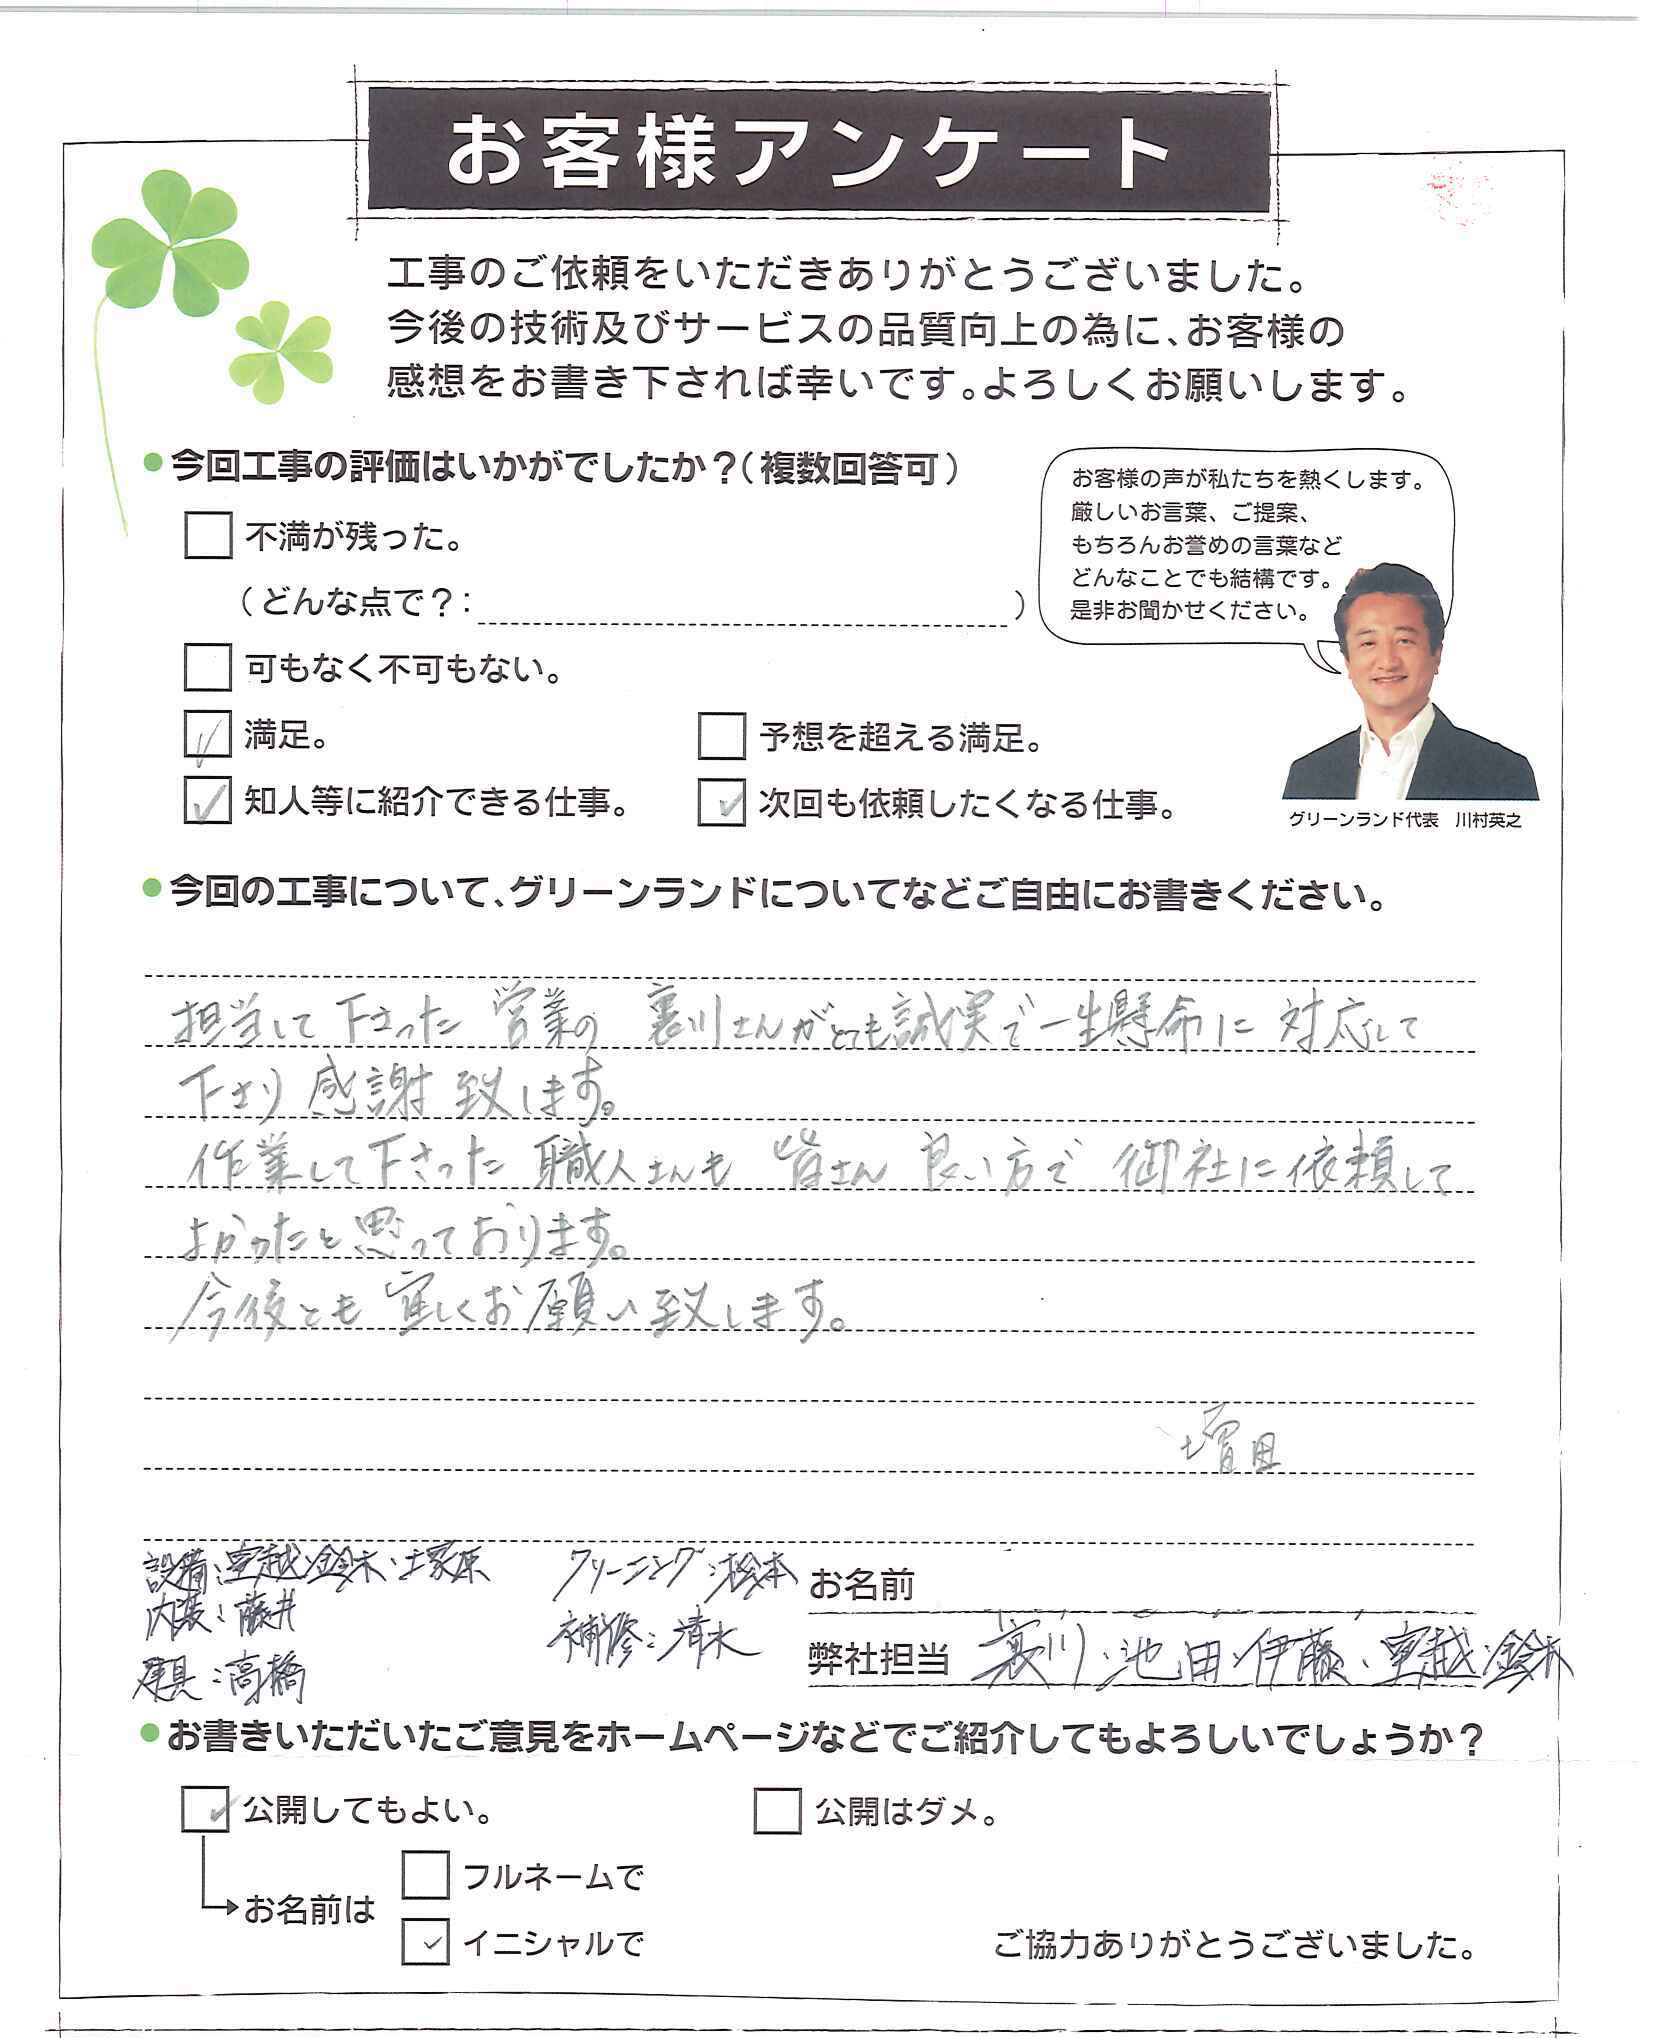 お客様アンケート
工事のご依頼をいただきありがとうございました。
今後の技術及びサービスの品質向上の為に、お客様の
感想をお書き下されば幸いです。よろしくお願いします。
●今回工事の評価はいかがでしたか?(複数回答可)
不満が残った。
(どんな点で?: )
可もなく不可もない。
満足。 予想を超える満足。
知人等に紹介できる仕事。 次回も依頼したくなる仕事。
お客様の声が私たちを熱くします。
厳しいお言葉、ご提案、
もちろんお誉めの言葉など
どんなことでも結構です。
是非お聞かせください。
グリーンランド代表 川村英之
●今回の工事について、グリーンランドについてなどご自由にお書きください。
担当して下さった 営業の 裏川さんがとても誠実で一生懸命に 対応して
下さり 感謝 致します。
作業して下さった 職人さんも 皆さん 良い方で 御社に依頼して
よかったと思っております。
今後とも 宜しくお願い致します。
増田
設備:室越・鈴木・土塚原
内装:藤井
建具:高橋
クリーニング:松本
補修:清水
お名前
弊社担当 裏川・池田・伊藤・室越・鈴木
●お書きいただいたご意見をホームページなどでご紹介してもよろしいでしょうか?
公開してもよい。 公開はダメ。
お名前は
フルネームで
イニシャルで
ご協力ありがとうございました。